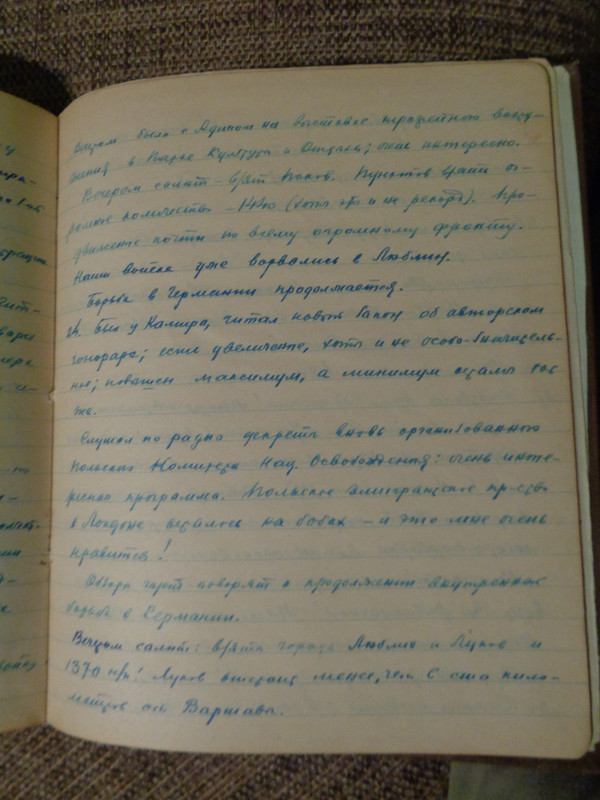 Вечером был с Адиком на выставке трофейного воору-
жения в Парке Культуры и Отдыха; очень интересно.
Вечером салют - взят Псков. Пунктов взяли ог-
ромное количество - 1440 (хоть это и не рекорд). Про-
движение почти по всему огромному фронту.
Наши войска уже ворвались в Люблин.
Борьба в Германии продолжается.
24. Был у Камира, читал новый закон об авторском
гонораре; есть увеличение, хоть и не особо значитель-
ное; повышен максимум, а минимум остался тот
же.
Слушал по радио декреты вновь организованного
Польского Комитета Нац. Освобождения: очень инте-
ресная программа. Польское эмигрантское пр-ство
в Лондоне осталось на бобах - и это мне очень
нравится!
Обзоры газет говорят о продолжении внутренней
борьбы в Германии.
Вечером салют: взяты города Люблин и Луков и
1370 н/п! Луков отстоит менее, чем в ста кило-
метров от Варшавы.